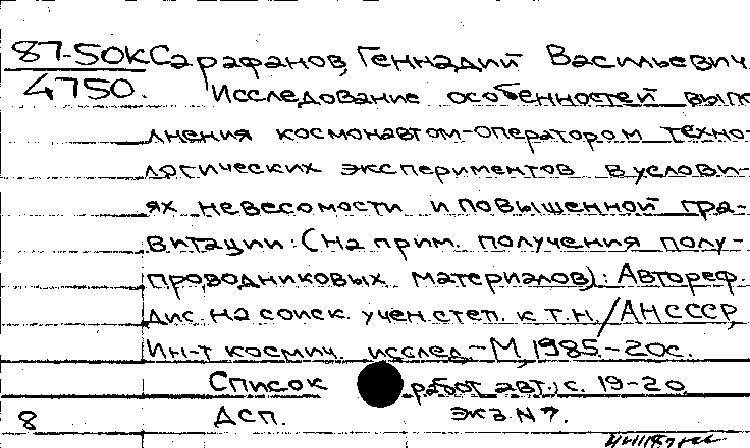 87-50К Сарафанов, Геннадий Васильевич
4750. Исследование особенностей выпо
лнения космонавтом-оператором техно-
логических экспериментов в услови-
ях невесомости и повышенной гра-
витации: (На прим. получения полу-
проводниковых материалов): Автореф.
дис. на соиск. учен. степ. к.т.н. / АН СССР,
Ин-т космич. исслед. - М, 1985. - 20с.
Список работ авт.: с. 19-20
8 ДСП. экз N7.